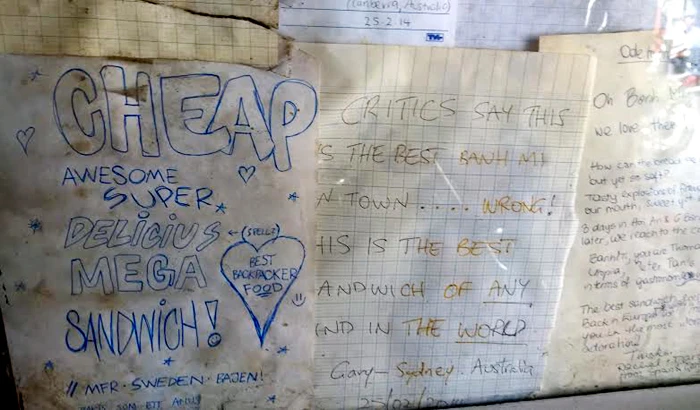 (Canberra, Australia)
25.2.14
CHEAP
AWESOME
SUPER
DELICIUS ← (SPELL?)
MEGA
SANDWICH!
BEST
BACKPACKER
FOOD
// MFR · SWEDEN · BAJEN!
CRITICS SAY THIS
IS THE BEST BANH MI
N TOWN .... WRONG!
HIS IS THE BEST
ANDWICH OF ANY
IND IN THE WORLD
Gary - Sydney Australia
25/02/20
Ode
Oh Banh
we love
How can the bread
but yet so soft?
Tasty explosion
our mouth, sweet
3 days in Hoi An &
later, we reach to the
terms of gastronom
The best sandwich
Back in Europe
you the more